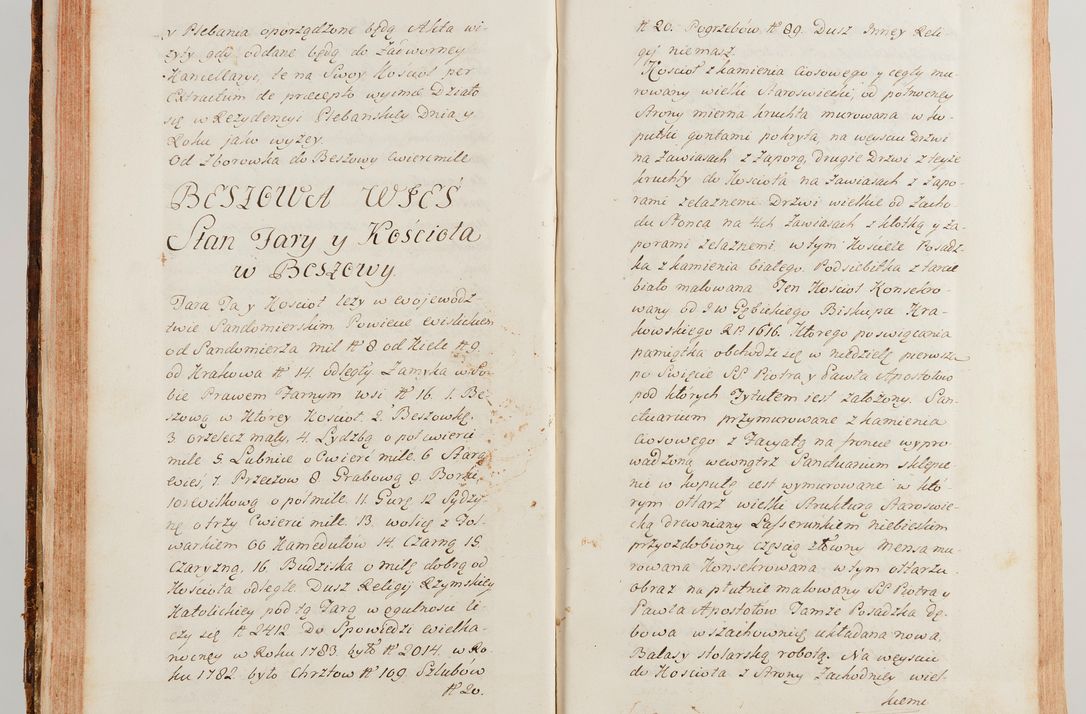 y Plebania oporządzone będą Akta wi-
zyty gdy oddane będą do Zadworney
Kancellaryi, te na Swoy Koscioł per
Extractum de præcepto wyimie Działo
się w Rezydencyi Plebanskiey Dnia y
Roku jako wyzey.
Od Zborowka do Beszowy Cwiercmile
BESZOWA WIEŚ
Stan Fary y Kościoła
w BESZOWY.
Fara Ta y Koscioł lezy w Wojewodz-
twie Sandomierskim Powiecie Wislickiem
od Sandomierza mil № 8 od Kielc № 9.
od Krakowa № 14. odległy. Zamyka w So-
bie Prawem Farnym wsi № 16. 1. Be-
szową w Ktorey Kosciół. 2. Beszowkę,
3. Orzelecz mały, 4. Łydzbą o pol cwierci
mile. 5. Lubnice o Cwierć mile. 6 Starą
Wieś, 7. Przeczow 8. Grabową 9. Borki,
10. Wilkową o polmile. 11. Gurę 12 Sydzy-
nę o trzy Cwierci mile. 13. Wolicę z Fol-
warkiem OO Kamedułow 14. Czarną 15
Czaryzną, 16. Budziska o milę dobrą od
Kościoła odległe. Dusz Religij Rzymskiey
Katolickiey pod tą Farą w ogulnosci li-
czy się № 2412. Do Spowiedzi Wielka-
nocney w Roku 1783. było № 2014. w Ro-
ku 1782. było Chrztow № 109. Szlubów
№ 20.
№ 20. Pogrzebów № 89. Dusz Inney Reli-
gij niemasz.
Kościoł z kamienia Ciosowego y cegły mu-
rowany wielki Staroswiecki, od połnocney
Strony mierna kruchta murowana w ko-
pułki gontami pokryta, na weysciu Drzwi
na Zawiasach z Zaporą, drugie Drzwi z teyże
kruchty do Kościoła na Zawiasach z Zapo-
rami zelaznemi Drzwi wielkie od Zacho-
du Słonca na 4ch Zawiasach z kłotką y Za-
porami zelaznemi, w tym Kościele Posadz-
ka z kamienia białego. Podsiebitka z tarcic
biało malowana. Ten Kościoł Konsekro-
wany od J W Gębickiego Biskupa Kra-
kowskiego R.P 1616. Ktorego poswięcania
pamiątka obchodzi się w niedzielę pierwszą
po Święcie SS Piotra y Pawła Apostołow
pod ktorych Tytułem iest założony. San-
ctuarium przymurowane z kamienia
Ciosowego z Facyatą na froncie wypro-
wadzoną wewnątrz Sanctuarium sklepie-
nie w kopułę iest wymurowane w któ-
rym ołtarz wielki Strukturą Staroswie-
cką drewniany Laszerunkiem niebieskim
przyozdobiony częścią złocony Mensa mu-
rowana Konsekrowana w tym ołtarzu
obraz na płutnie malowany SS Piotra y
Pawła Apostołow Tamże Posadzka dę-
bowa w szachownię układana nowa,
Balasy stolarską robotą. Na weysciu
do Kościoła z Strony Zachodniey wiel-
kiemi